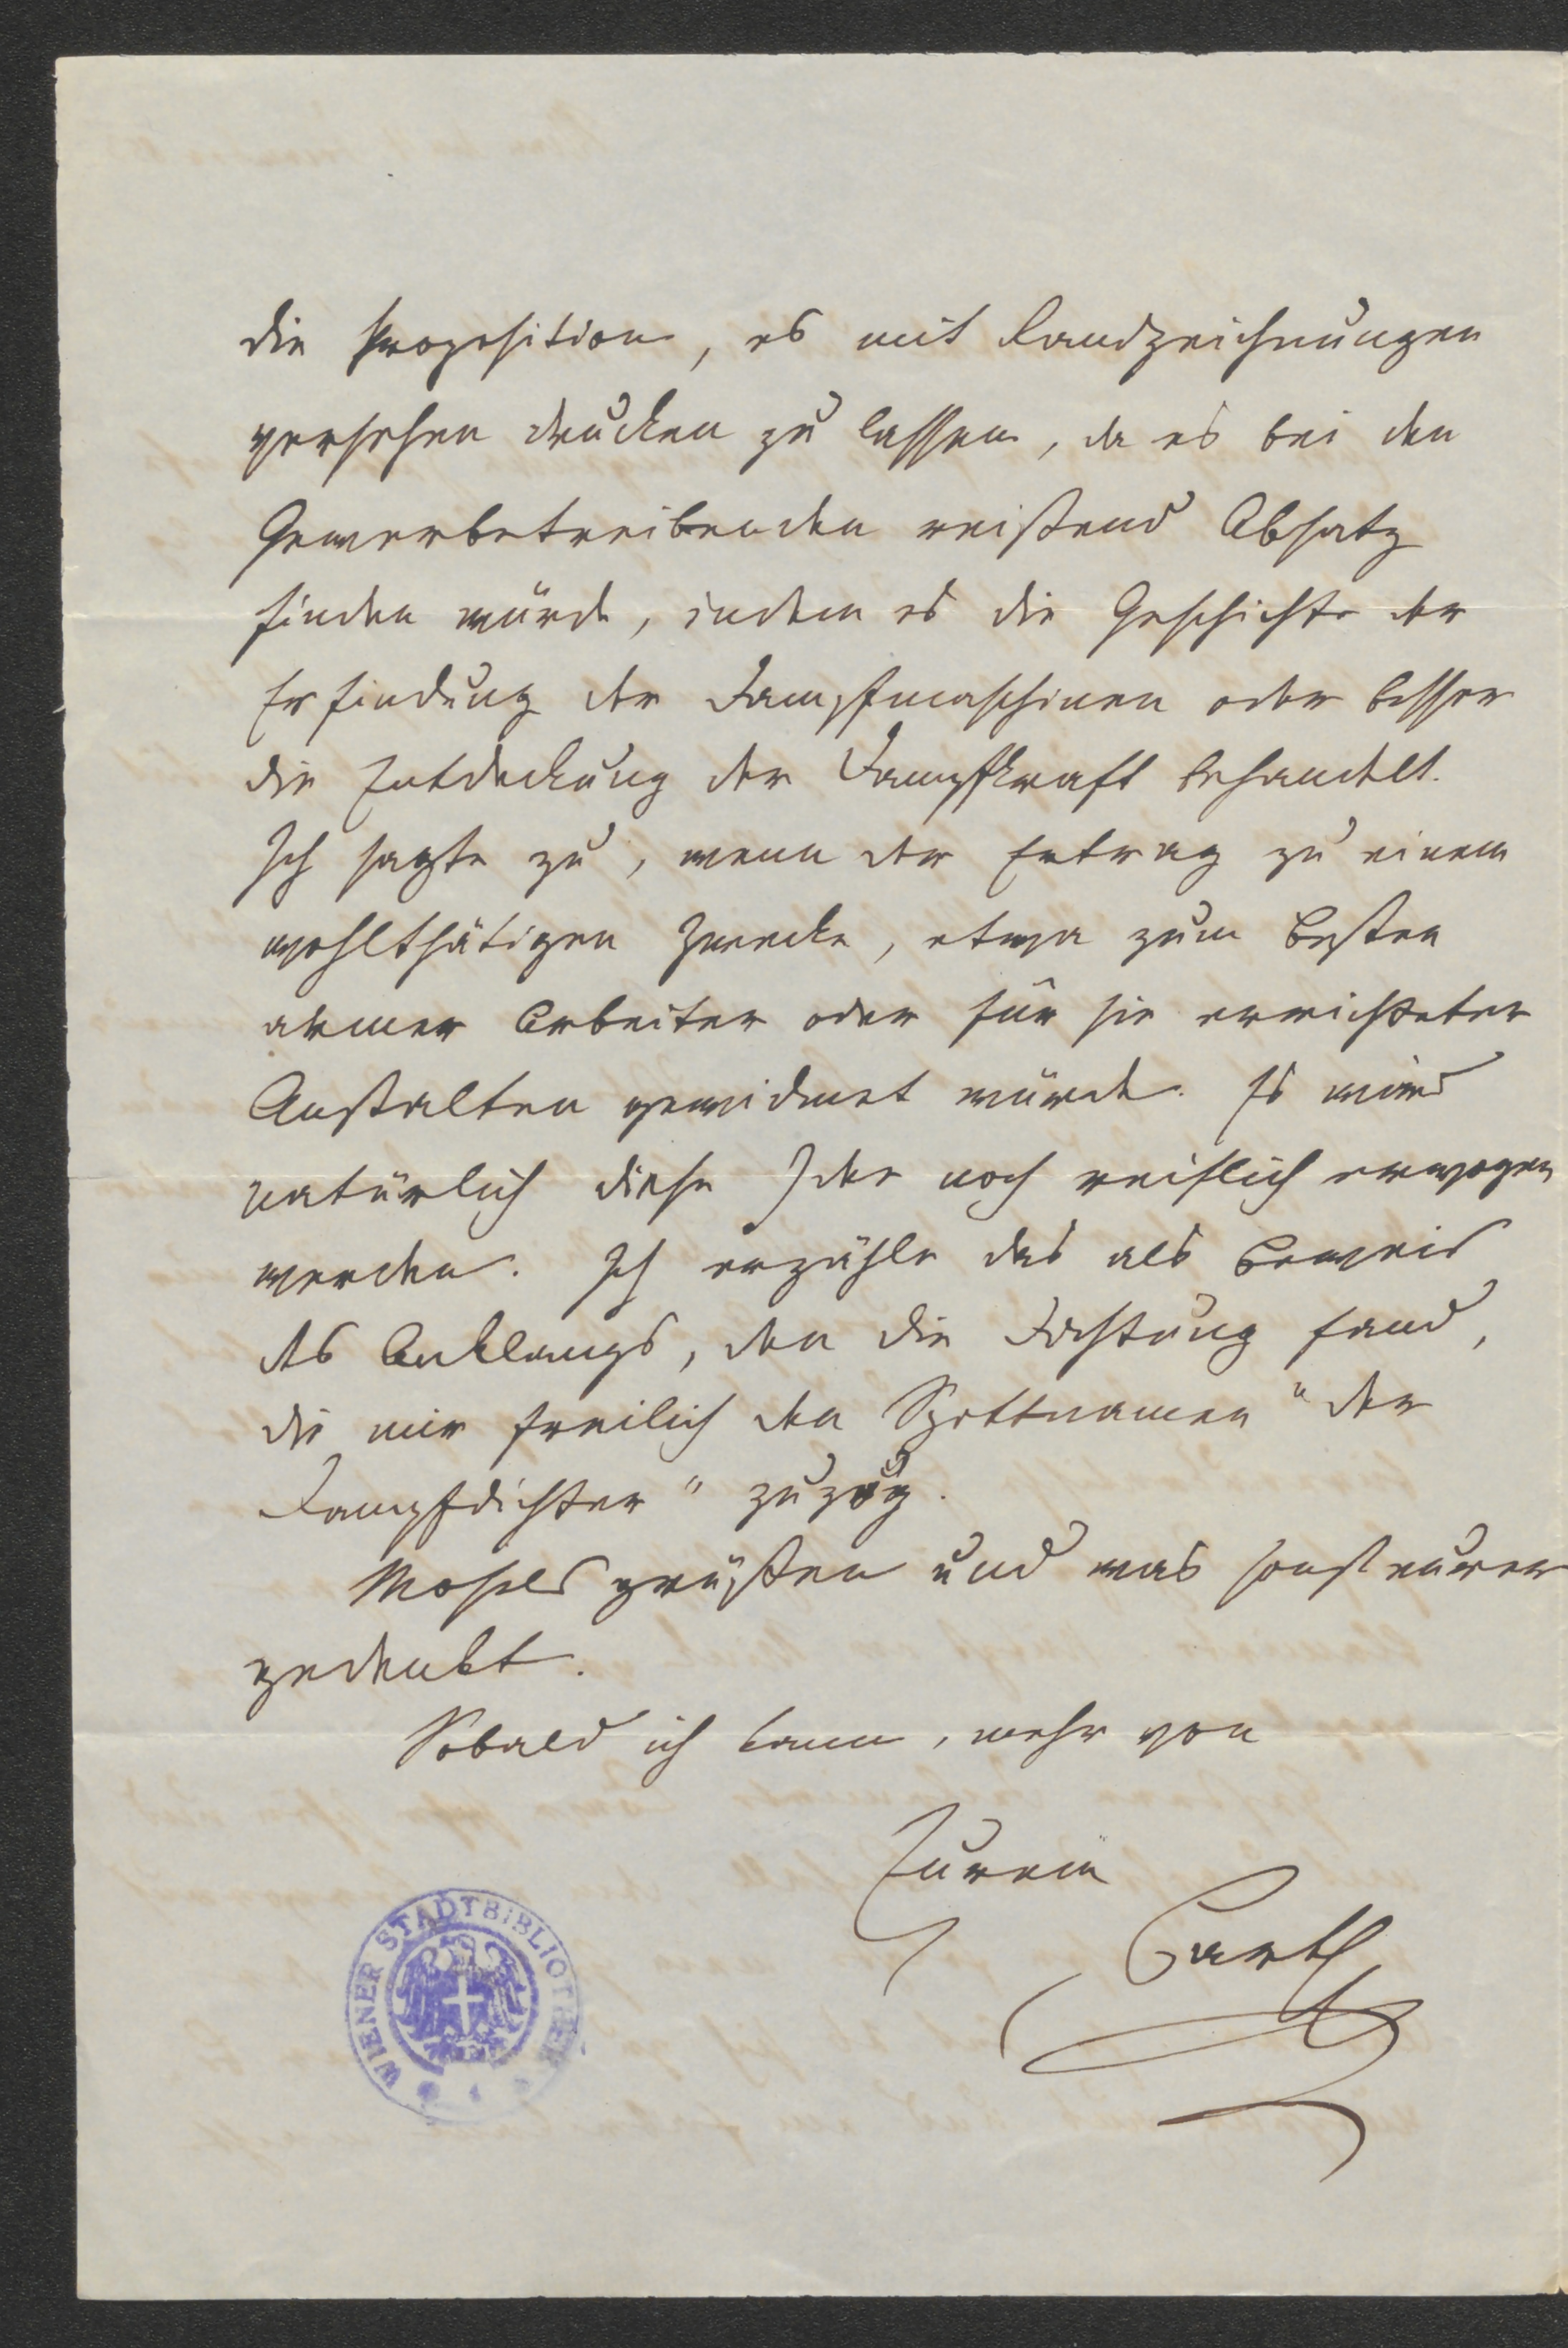 die Proposition, es mit Randzeichnungen
versehen drucken zu lassen, da es bei den
Gewerbetreibenden reißend Absatz
finden würde, indem es die Geschichte der
Erfindung der Dampfmaschinen oder besser
die Entdeckung der Dampfkraft behandelt.
Ich sagte zu, wenn der Ertrag zu einem
wohlthätigen Zwecke, etwa zum Besten
armer Arbeiter oder für sie errichteter
Anstalten gewidmet würde. Es wird
natürlich diese Idee noch reiflich erwogen
werden. Ich erzähle das als Beweis
des Anklangs, den die Dichtung fand,
die mir freilich den Spottnamen "der
Dampfdichter" zuzog.
grüßen und was sonst eurer
gedenkt.
Sobald ich kann, mehr von
Eurem
Barth
WIENER STADTBIBLIOTHEK